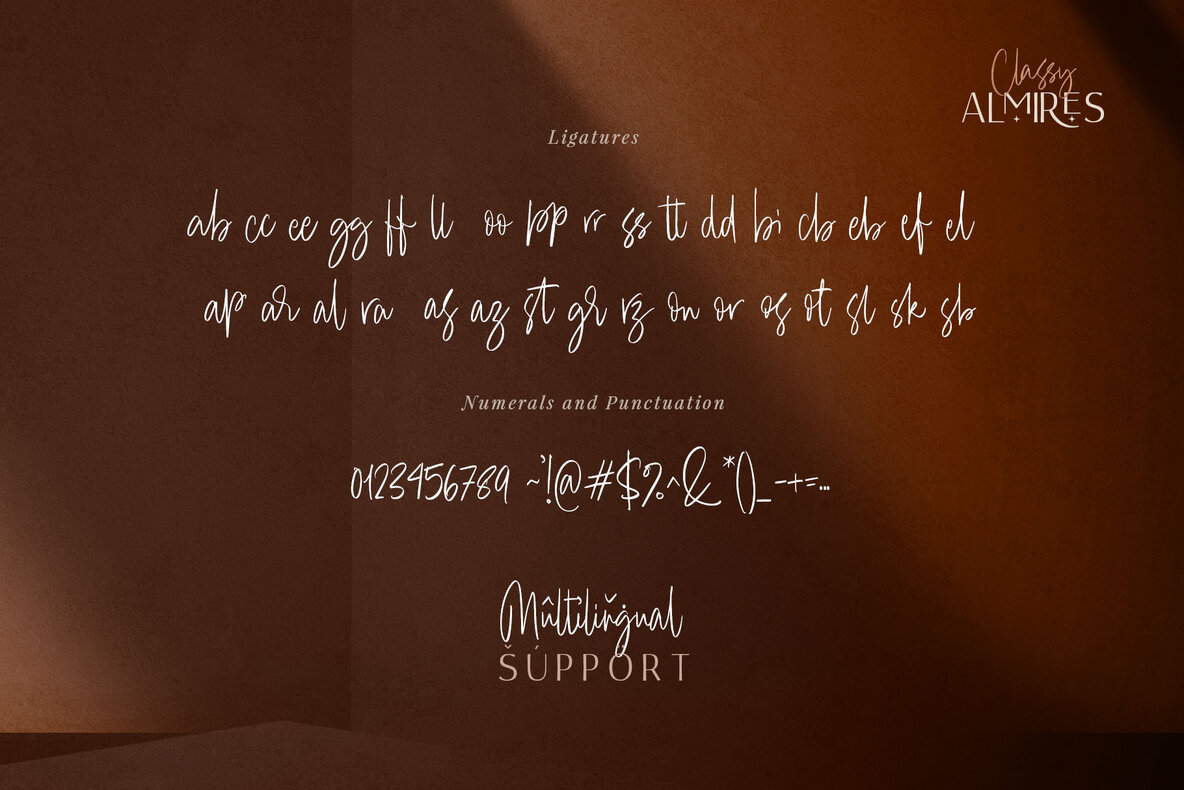 Classy
ALMIRES
Ligatures
ab cc ee gg ff ll oo pp rr ss tt dd bi cb eb ef el
ap ar al ra as az st gr rz on or os ot sl sk sb
Numerals and Punctuation
0123456789 ~'!@#$%^&*()_-+=...
Mûltïliňġual
ŠÚPPÖRT